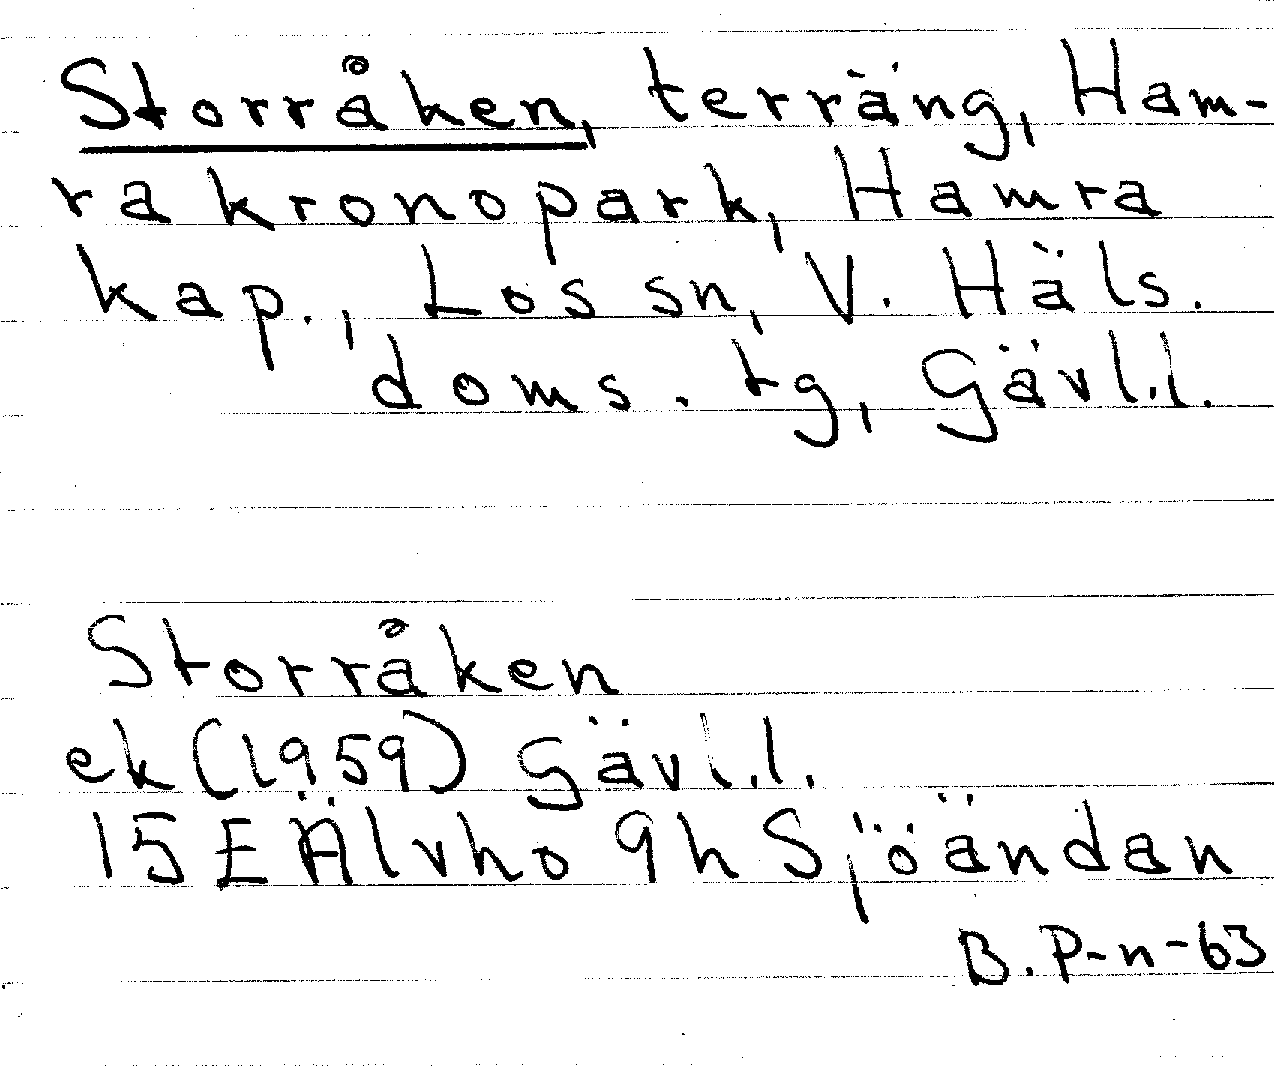 Storråken, terräng, Ham-
ra kronopark, Hamra
kap., Los sn, V. Häls.
doms. tg, Gävl.l.
Storråken
ek (1959) Gävl.l.
15 E Älvho 9h Sjöändan
B. P-n-63